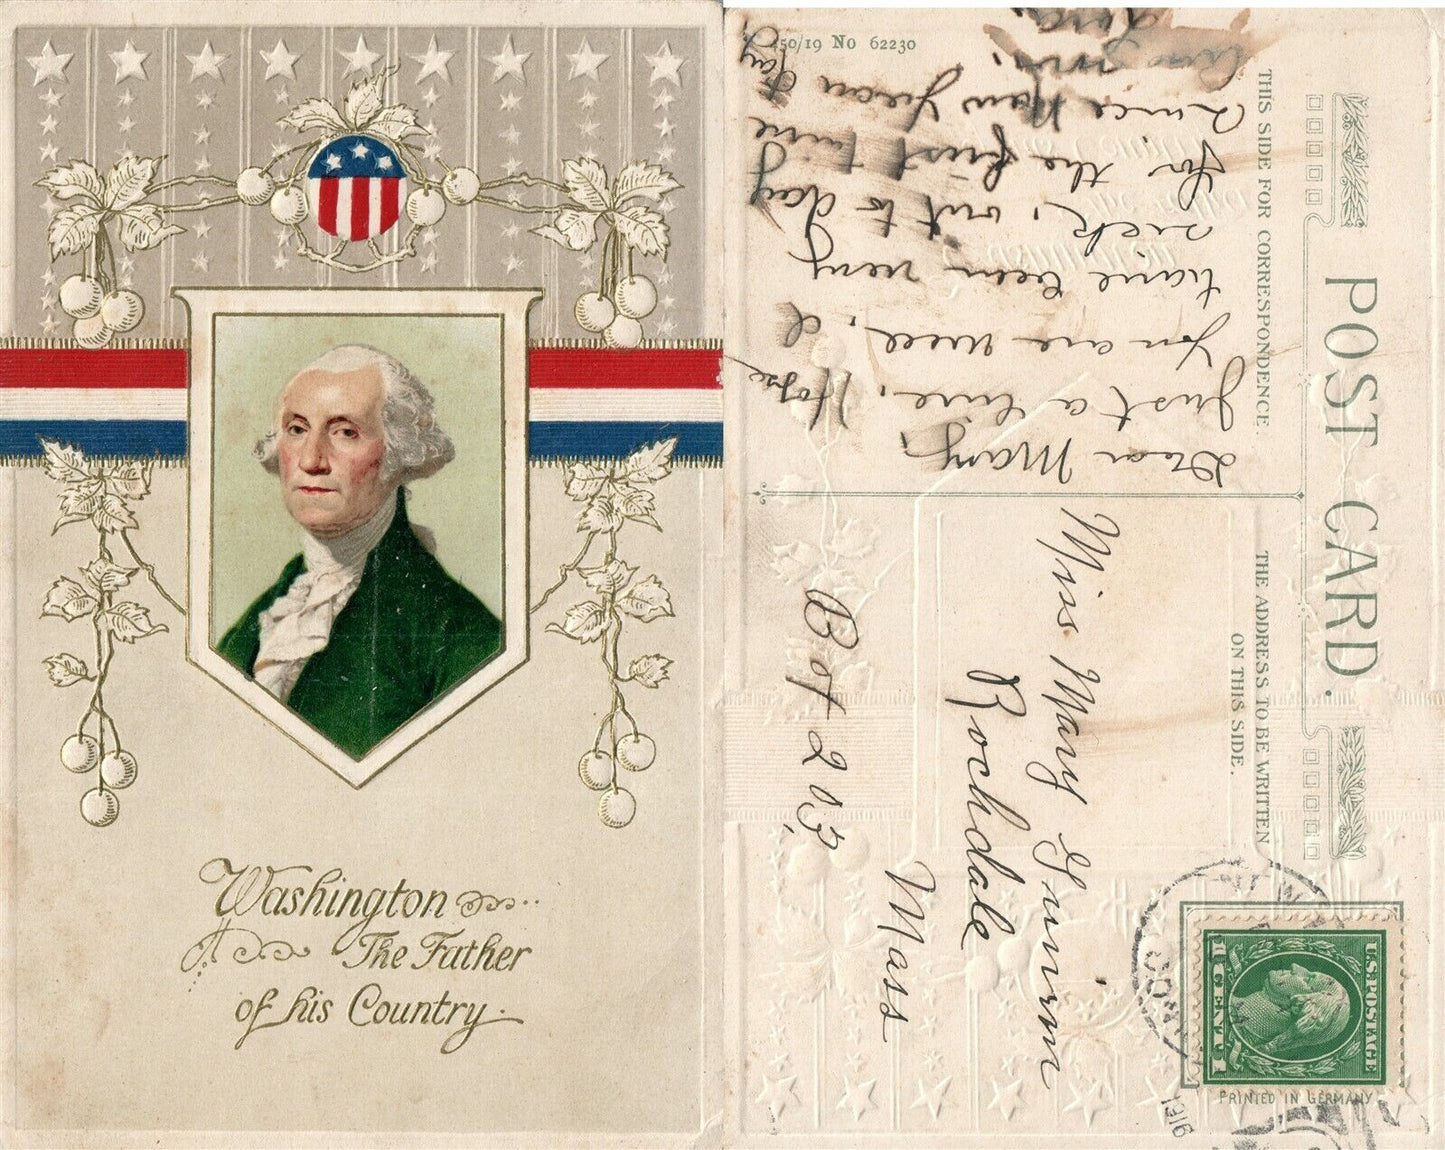 Washington
The Father
of his Country.
450/19 No 62230
POST CARD.
THIS SIDE FOR CORRESPONDENCE.
THE ADDRESS TO BE WRITTEN
ON THIS SIDE.
Dear Mary,
Just a line, Hope
you are well, I
have been very
sick, out to day
for the first time
since New Years day
Miss Mary
Rochdale
Mass
Box 203,
U.S. POSTAGE
1 CENT 1
PRINTED IN GERMANY